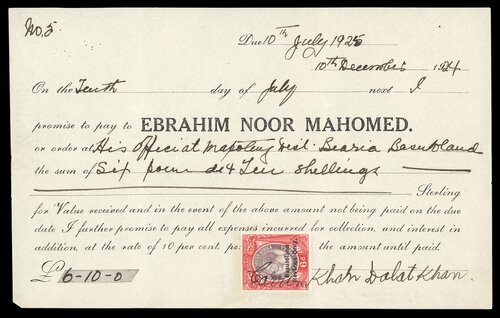 No. 5
Due 10th July 1925
10th December 1924
On the Tenth day of July next I
promise to pay to EBRAHIM NOOR MAHOMED.
or order at His Office at Mapoteng Dist. Bearia Basutoland
the sum of Six pounds & Ten shellings
Sterling
for Value received and in the event of the above amount not being paid on the due
date I further promise to pay all expenses incurred for collection, und interest in
addition, at the rate of 10 per cent. per the amount until paid.
£ 6-10-0
6d
Khan Dalat Khan.